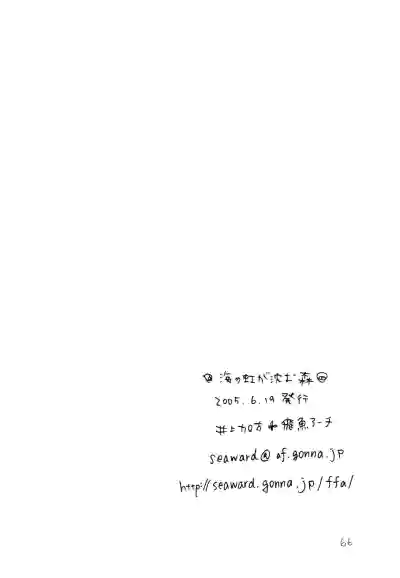 海の虹が沈む森
2005.6.19 発行
井上カロ方 飛魚ヨーチ
seaward@af.gonna.jp
http://seaward.gonna.jp/ffa/
66